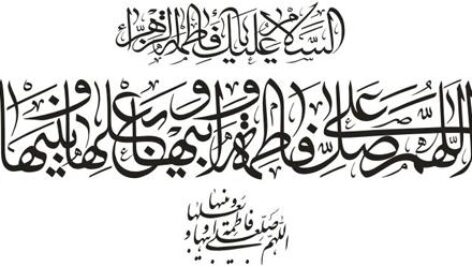 السلام علیك یا فاطمة الزهراء
اللهم صل علی فاطمة و ابیها و بعلها و بنیها
اللهم صل علی فاطمة و ابیها و بعلها و بنیها